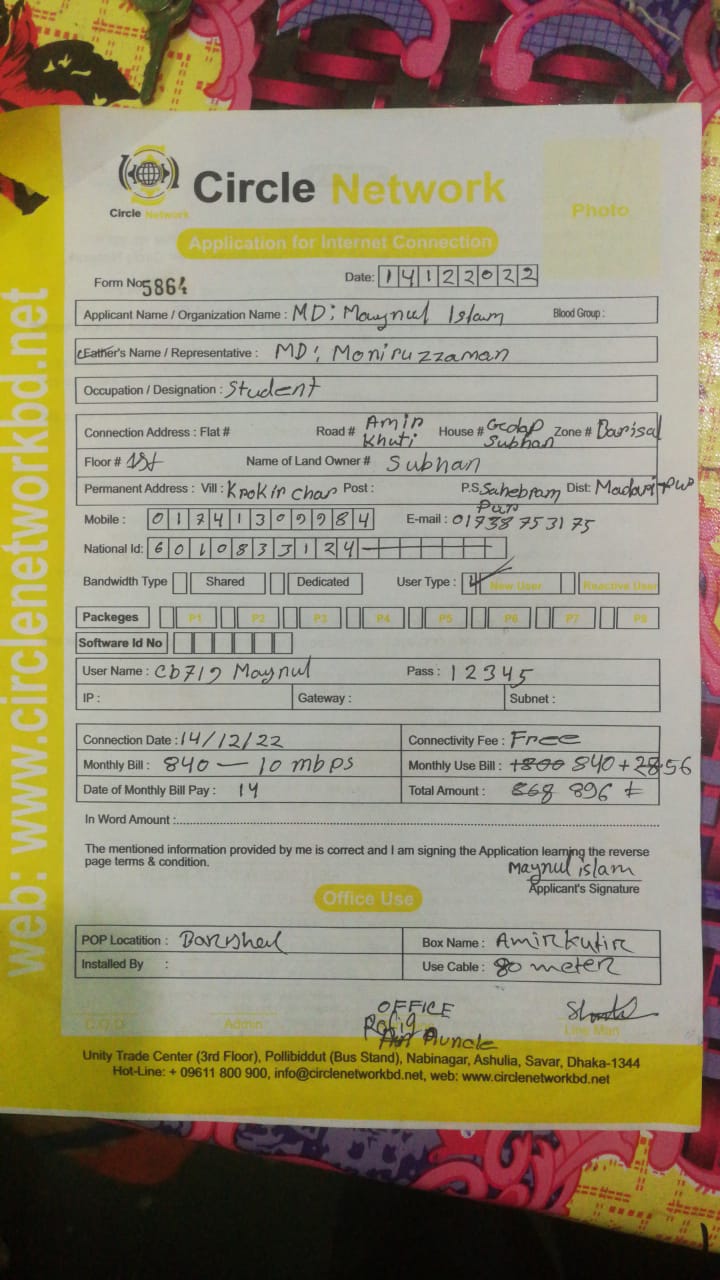 Circle Network
Circle Network
Photo
Application for Internet Connection
Form No 5864
Date: 14122022
Applicant Name / Organization Name : MD: Maynul Islam Blood Group :
Father's Name / Representative : MD: Moniruzzaman
Occupation / Designation : Student
Connection Address : Flat # Road # Amir Khuti House # Subhan Zone # Barisal
Floor # 1st Name of Land Owner # Subhan
Permanent Address : Vill : Krokir Char Post : P.S Sahebram Pur Dist: Madaripur
Mobile : 01741309984 E-mail : 01738753175
National Id: 6010833124
Bandwidth Type Shared Dedicated User Type : New User Reactive User
Packeges P1 P2 P3 P4 P5 P6 P7 P8
Software Id No
User Name : Cb719 Maynul Pass : 12345
IP : Gateway : Subnet :
Connection Date : 14/12/22 Connectivity Fee : Free
Monthly Bill : 840 — 10 mbps Monthly Use Bill : 840 + 56
Date of Monthly Bill Pay : 14 Total Amount : 896
In Word Amount :
The mentioned information provided by me is correct and I am signing the Application learning the reverse
page terms & condition.
Maynul islam
Applicant's Signature
Office Use
POP Locatition : Box Name : Amirkutir
Installed By : Use Cable : 80 meter
OFFICE
Rafiq
C.O.O Admin Line Man
Unity Trade Center (3rd Floor), Pollibiddut (Bus Stand), Nabinagar, Ashulia, Savar, Dhaka-1344
Hot-Line: + 09611 800 900, info@circlenetworkbd.net, web: www.circlenetworkbd.net
web: www.circlenetworkbd.net